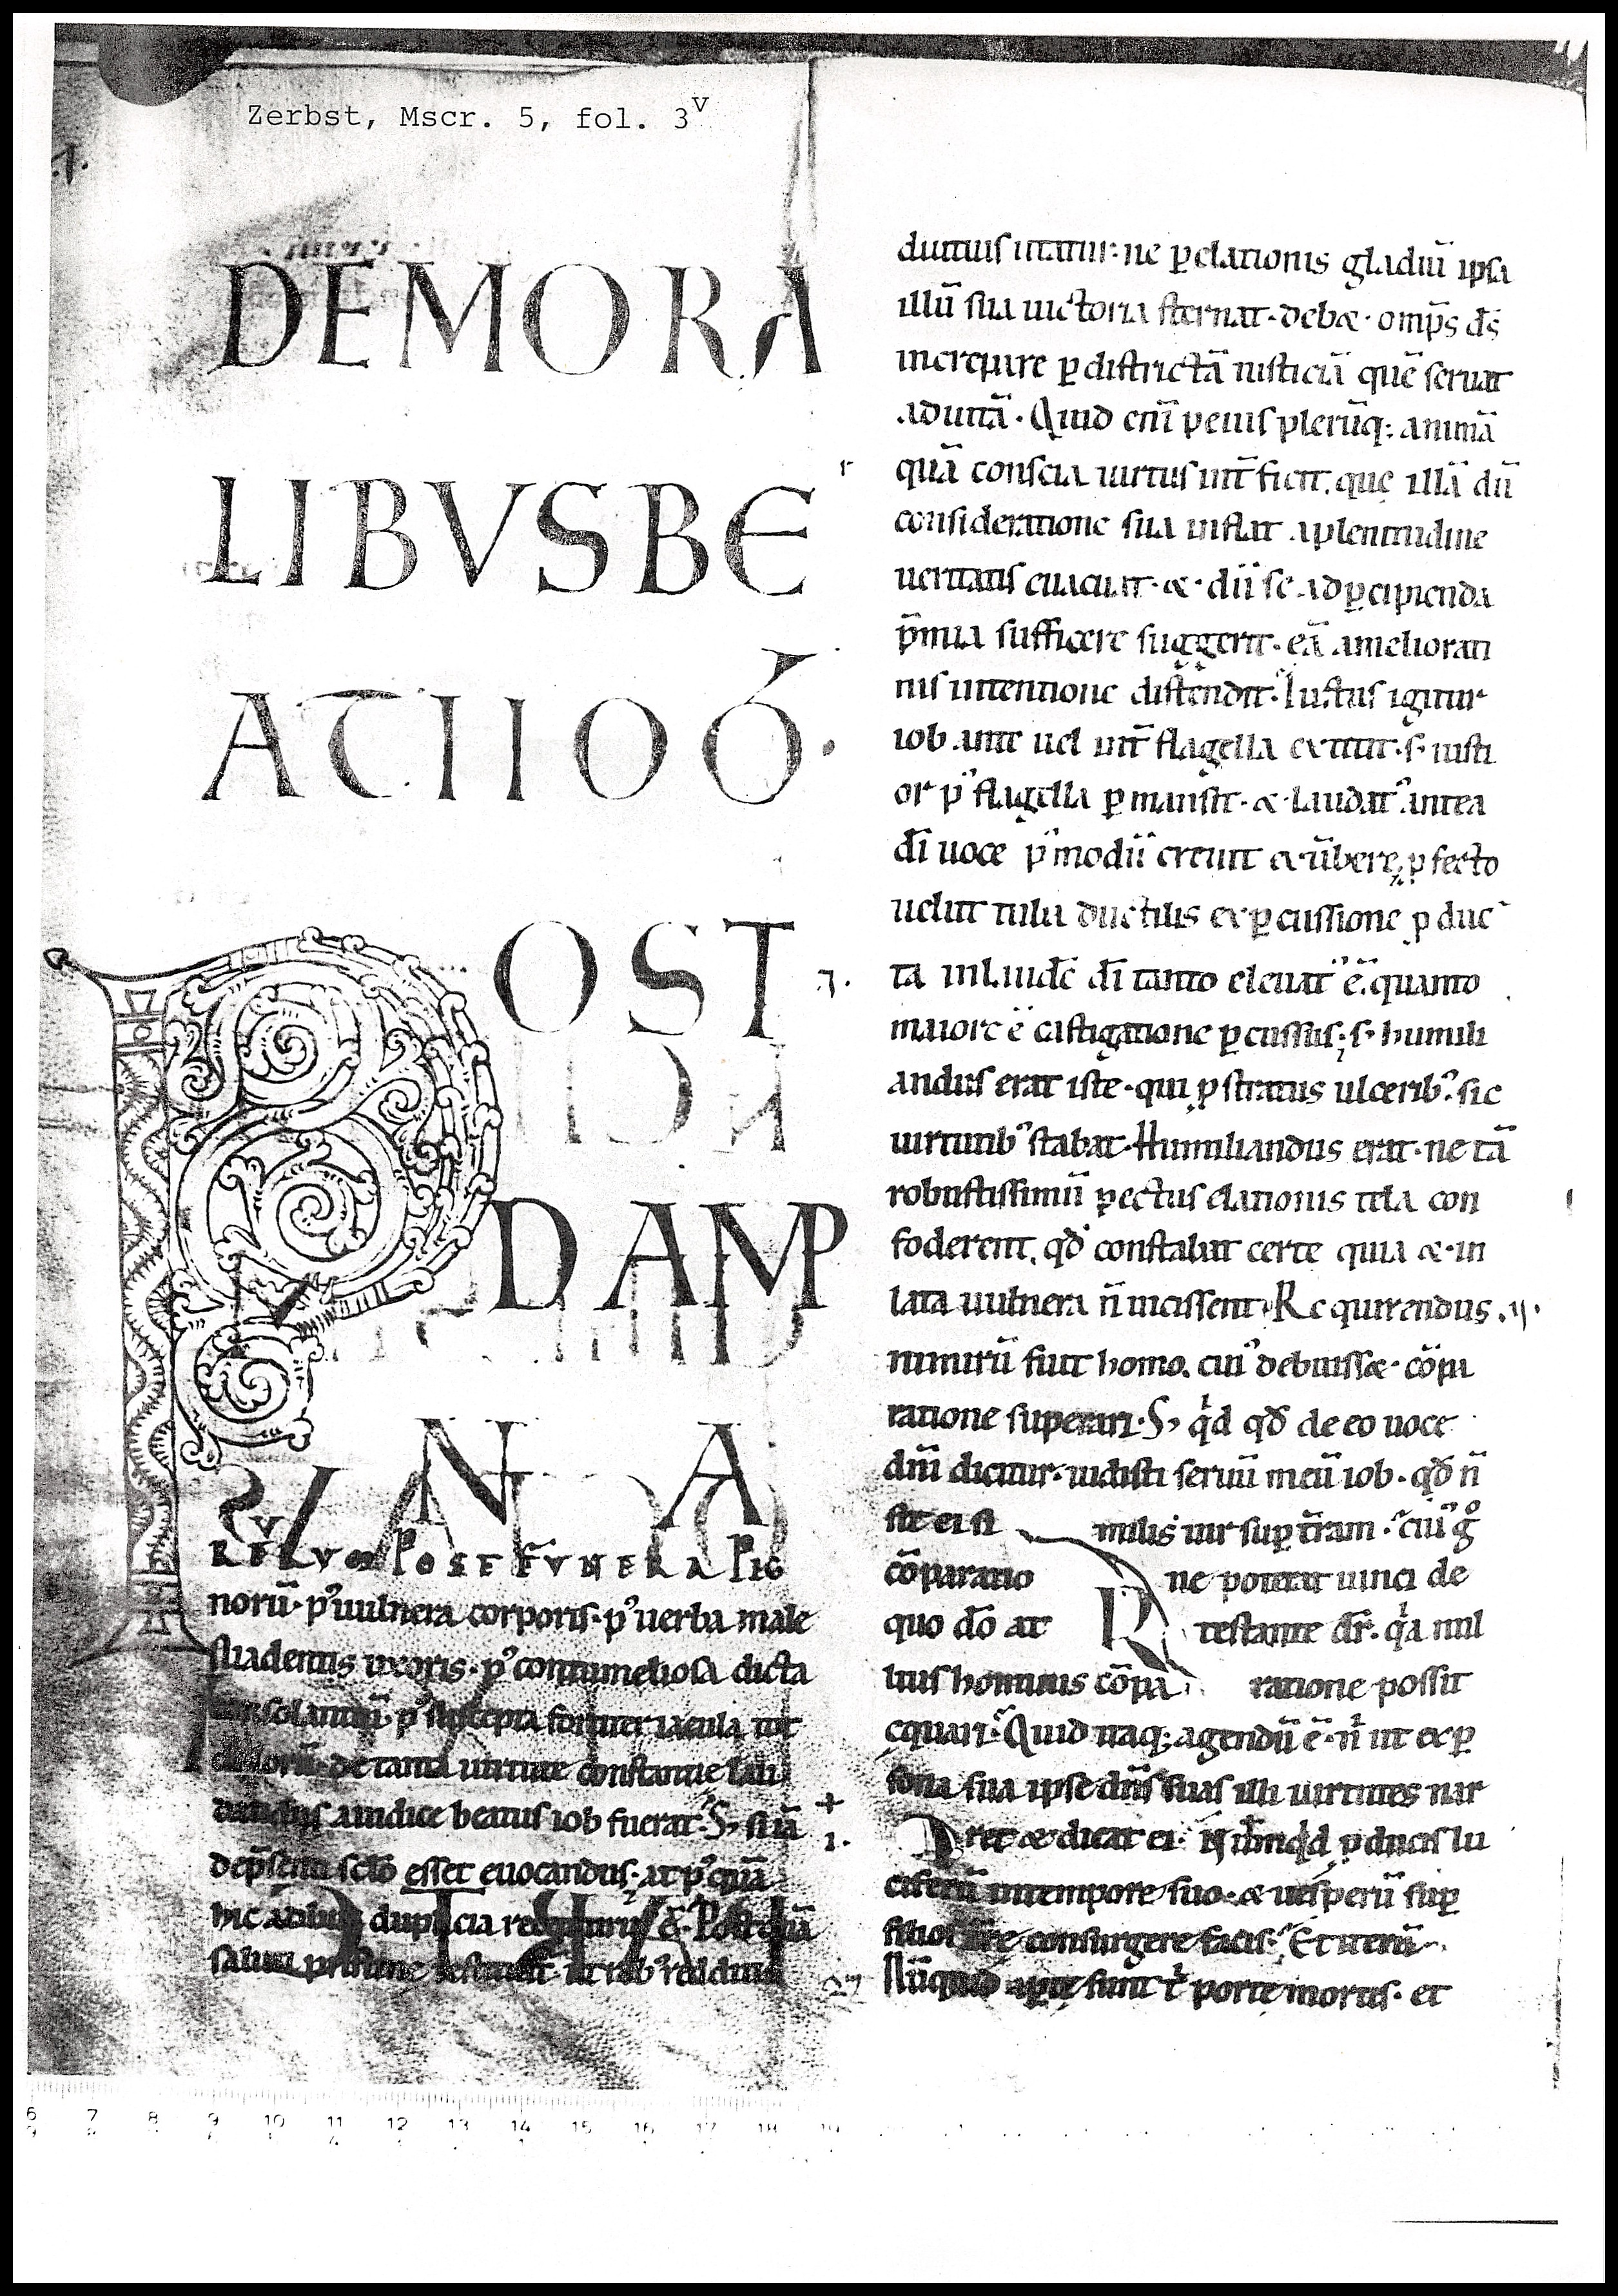 Zerbst, Mscr. 5, fol. 3v
DEMORA
LIBVSBE
ATI IOB.
POST
DAMP
NA
RERVM POST FVNERA PIG
norū· p᾿ uulnera corporis· p᾿ uerba male
suadentis uxoris· p᾿ contumeliosa dicta
consolantiū· p᾿ suscepta fortiter iacula tot
dolorū· de tanta uirtute constantie lau
dandus a iudice beatus iob fuerat· S; si iā
de p̄senti sclō esset euocandus· at p᾿ quā
hic adhuc duplicia recepturus ē· Postquā
saluti pristine restituit᾿ ut reb᾿ redditis
diutius utatur· ne ꝑ elationis gladiū ipsa
illū sua uictoria sternat· debet· omp̄s ds̄
increpare ꝑ districtā iusticiā quē seruat
ad uitā· Quid enī peius plerūq; animā
quā conscia uirtus int̄ficit. que illā dū
consideratione sua inflat a plenitudine
ueritatis euacuat· & dū se ad ꝑcipienda
p̄mia sufficere suggerit· eā a meliorati
nis intentione distendit· Iustus igitur
iob ante uel int̄ flagella extitit· s; iusti
or p᾿ flagella ꝑmansit· & laudat᾿ antea
dī uoce p᾿modū creuit & ūbere ꝓfecto
uelut tuba ductilis ex ꝑcussione ꝓduc
ta in laudē dī tanto eleuat᾿ ē· quanto
maiore ē castigatione ꝑcussus· s; humili
andus erat iste· qui ꝓstratus ulcerib᾿ sic
uirtutib᾿ stabat· Humiliandus erat· ne tā
robustissimū pectus elationis tela con
foderent. qd̄ constabat certe quia & in
lata uulnera n̄ uicissent· Requirendus
nimirū fuit homo. cui᾿ debuisset· cōpa
ratione superari· S; qd qd̄ de eo uoce
dn̄i dicitur· uidisti seruū meū iob· qd̄ n̄
sit ei si milis uir suꝑ t̄ram· cui᾿ g°
cōparatio ne poterat uinci de
quo dō at testante dr̄· qa nul
lius hominis cōpa ratione possit
equari· Quid itaq; agendū ē· n̄ ut ex ꝑ
sona sua ipse dn̄s suas illi uirtutes nar
ret & dicat ei· Nūmqd ꝓducis lu
ciferū in tempore suo· & uesperū suꝑ
filios t̄re consurgere facis· Et iterū
Nūquid aꝑte sunt t̄ porte mortis· et